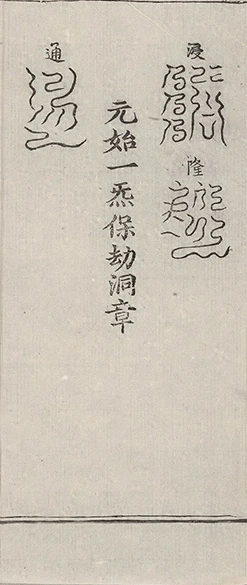 浸
隆
元始一炁保劫洞章
通